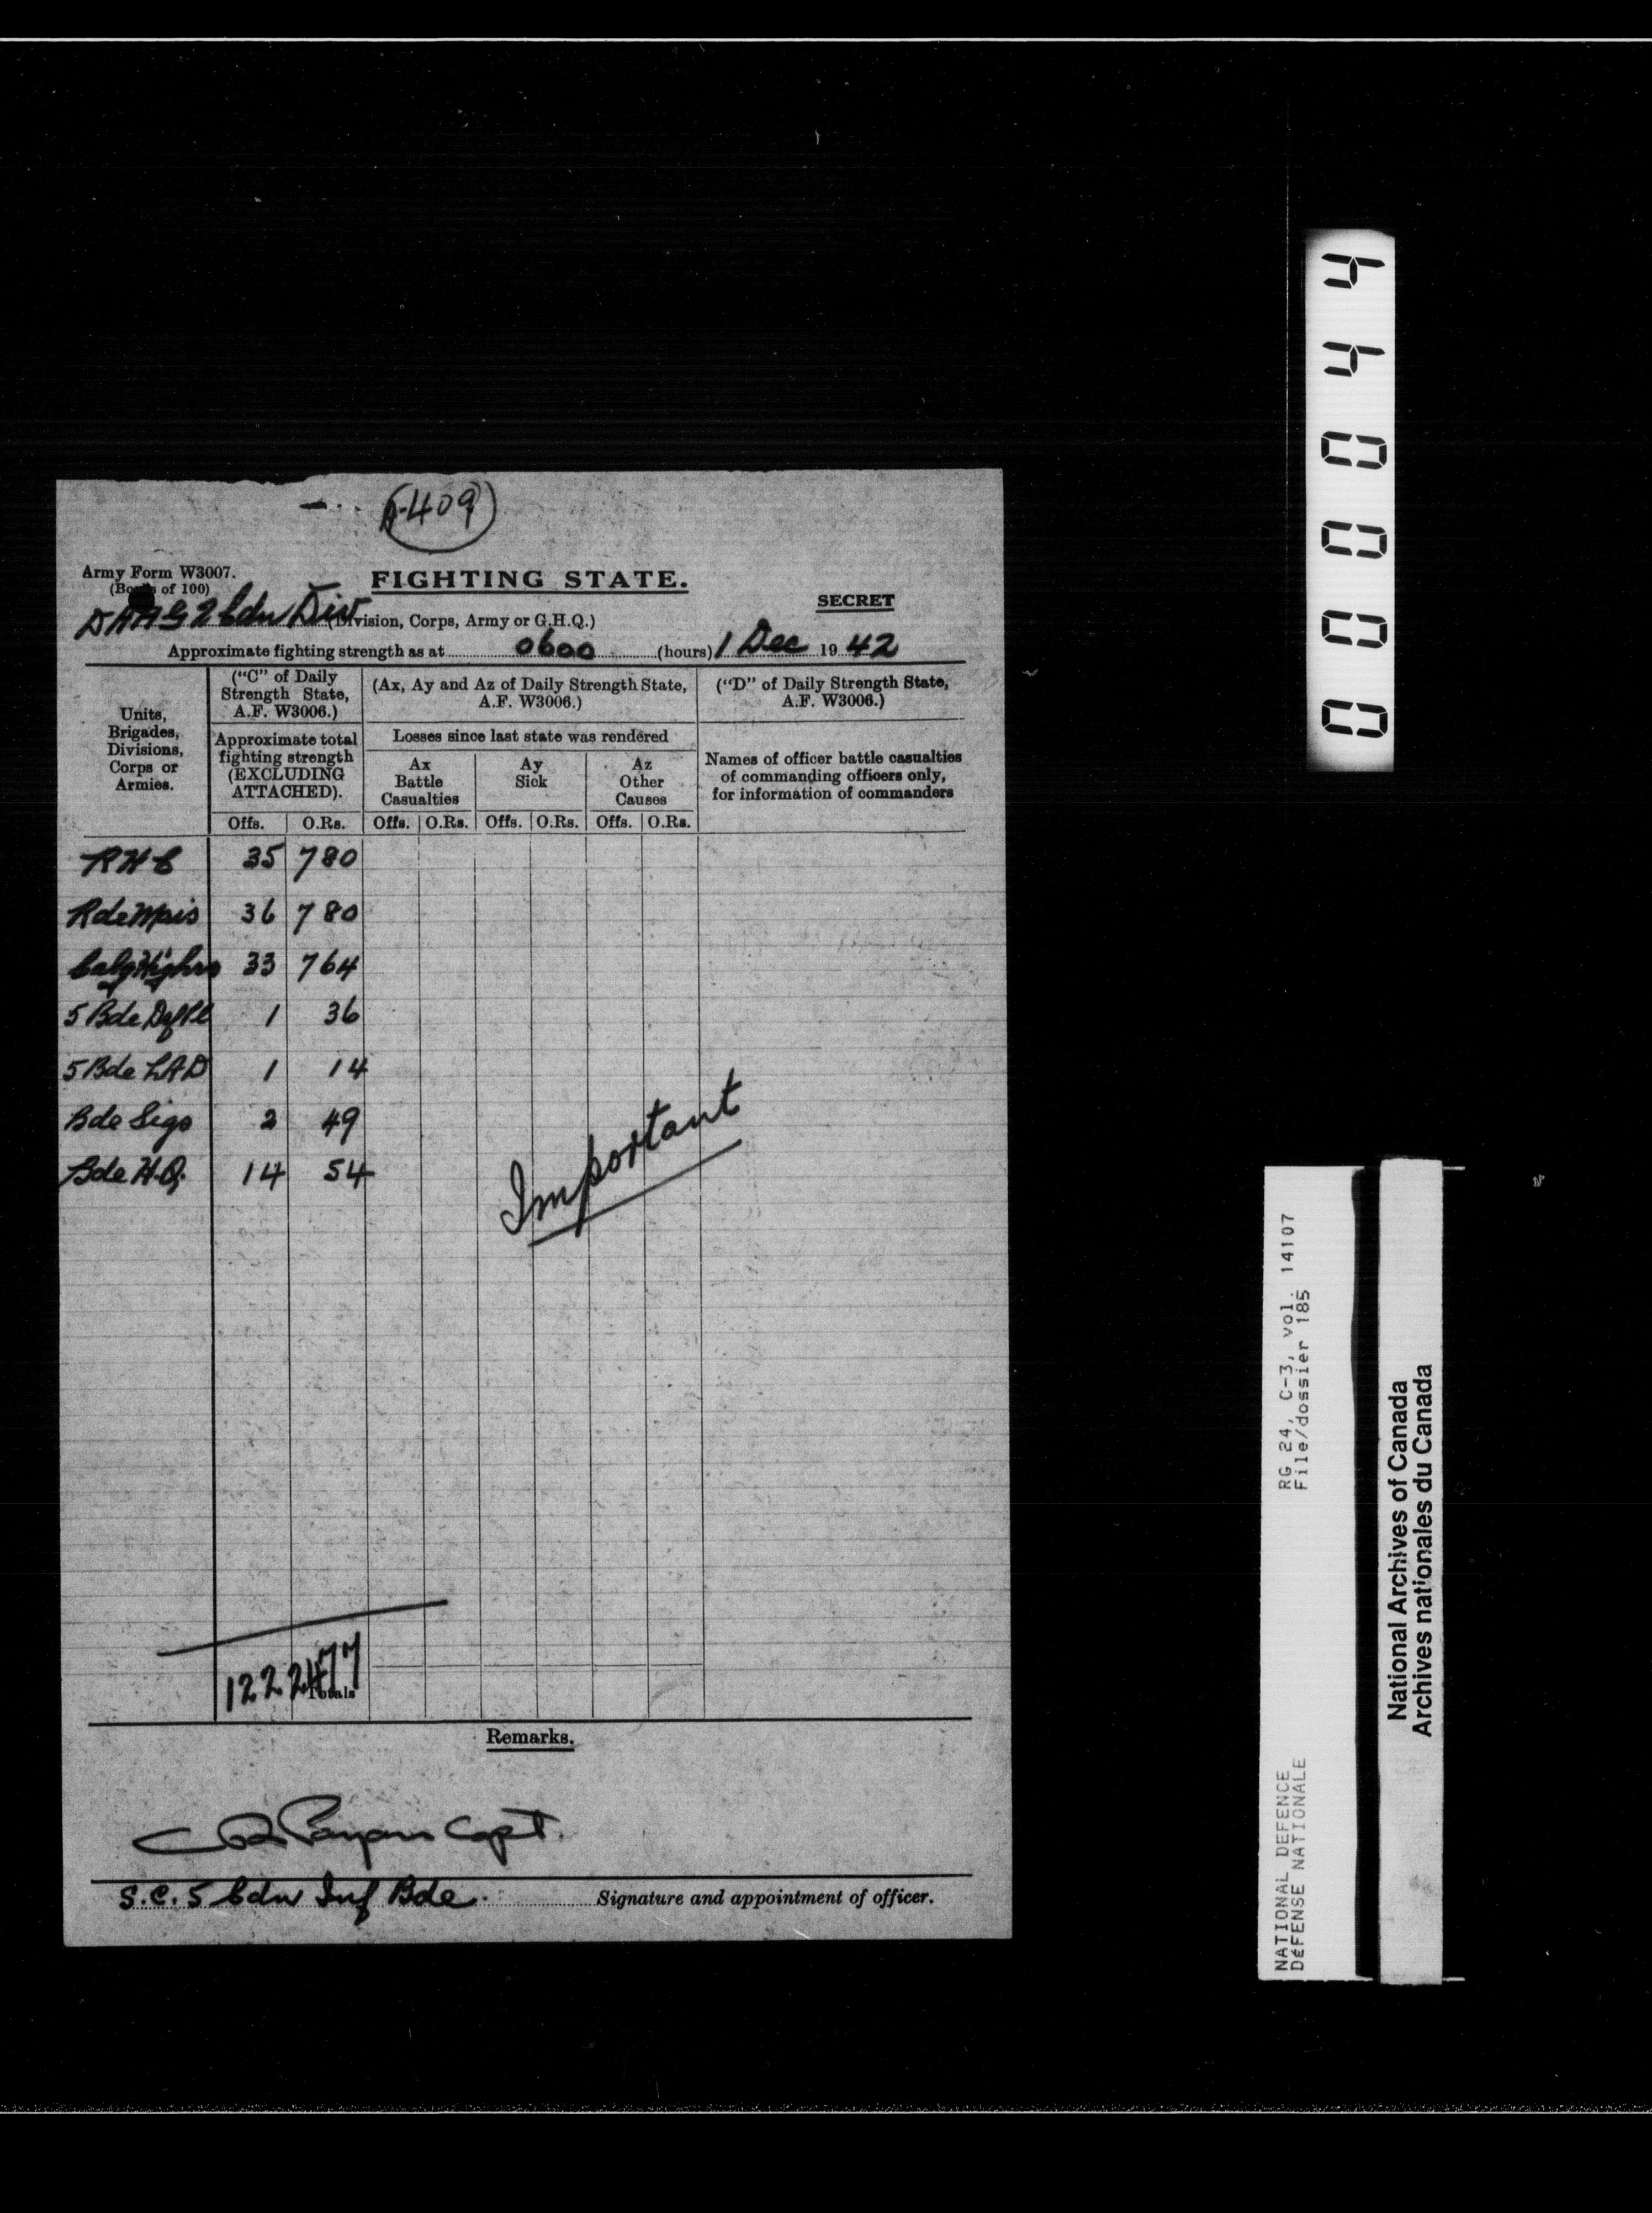 A-409
Army Form W3007.
(Books of 100)
FIGHTING STATE.
SECRET
DAAG 2 Cdn Div (Division, Corps, Army or G.H.Q.)
Approximate fighting strength as at 0600 (hours) 1 Dec 1942
Units, Brigades, Divisions, Corps or Armies.
("C" of Daily Strength State, A.F. W3006.)
Approximate total fighting strength (EXCLUDING ATTACHED).
(Ax, Ay and Az of Daily Strength State, A.F. W3006.)
Losses since last state was rendered
Ax Battle Casualties
Ay Sick
Az Other Causes
("D" of Daily Strength State, A.F. W3006.)
Names of officer battle casualties of commanding officers only, for information of commanders
Offs. O.Rs. Offs. O.Rs. Offs. O.Rs. Offs. O.Rs.
RHC 35 780
R de Mais 36 780
Calg Highrs 33 764
5 Bde Def Pl 1 36
5 Bde LAD 1 14
Bde Sigs 2 49
Bde H.Q. 14 54
Important
122 2477
Totals
Remarks.
Capt.
S.C. 5 Cdn Inf Bde. Signature and appointment of officer.
000044
RG 24, C-3, vol. 14107
File/dossier 185
NATIONAL DEFENCE
DÉFENSE NATIONALE
National Archives of Canada
Archives nationales du Canada